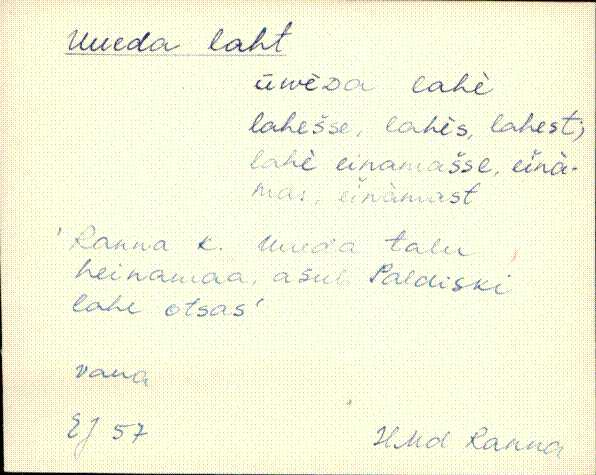 Uueda laht
ūwèᴅa lahè
lahešse, lahès, lahest;
lahè einamašse, eìnà-
mas, eìnàmast
'Ranna k. Uueda talu
heinamaa, asub Paldiski
lahe otsas'
vana
EJ 57 HMd Ranna